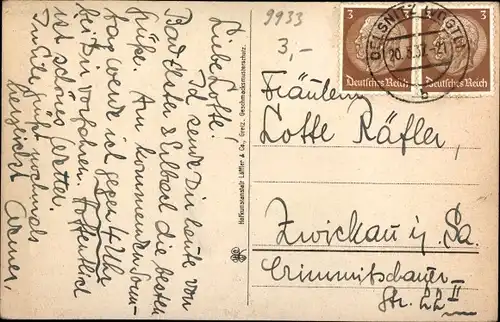 Liebe Lotte.
Id sende Dir heute von
Bad Elster & Elbad die besten
Grüße. Am kommenden Sonn-
tag werde ich gegen 4 Uhr
bei Dir vorfahren. Hoffentlich
ist schönes Wetter.
In Eile grüßt nochmals
herzlichst Werner.
Hofkunstanstalt Löffler & Co., Greiz. Geschmacksmusterschutz.
9933
3,-
3 3
Deutsches Reich Deutsches Reich
OELSNITZ (VOGTL)
20.8.37.-21
b
Fräulein
Lotte Räfler,
Zwickau i. Sa.
Crimmitschauer-
Str. 22 II